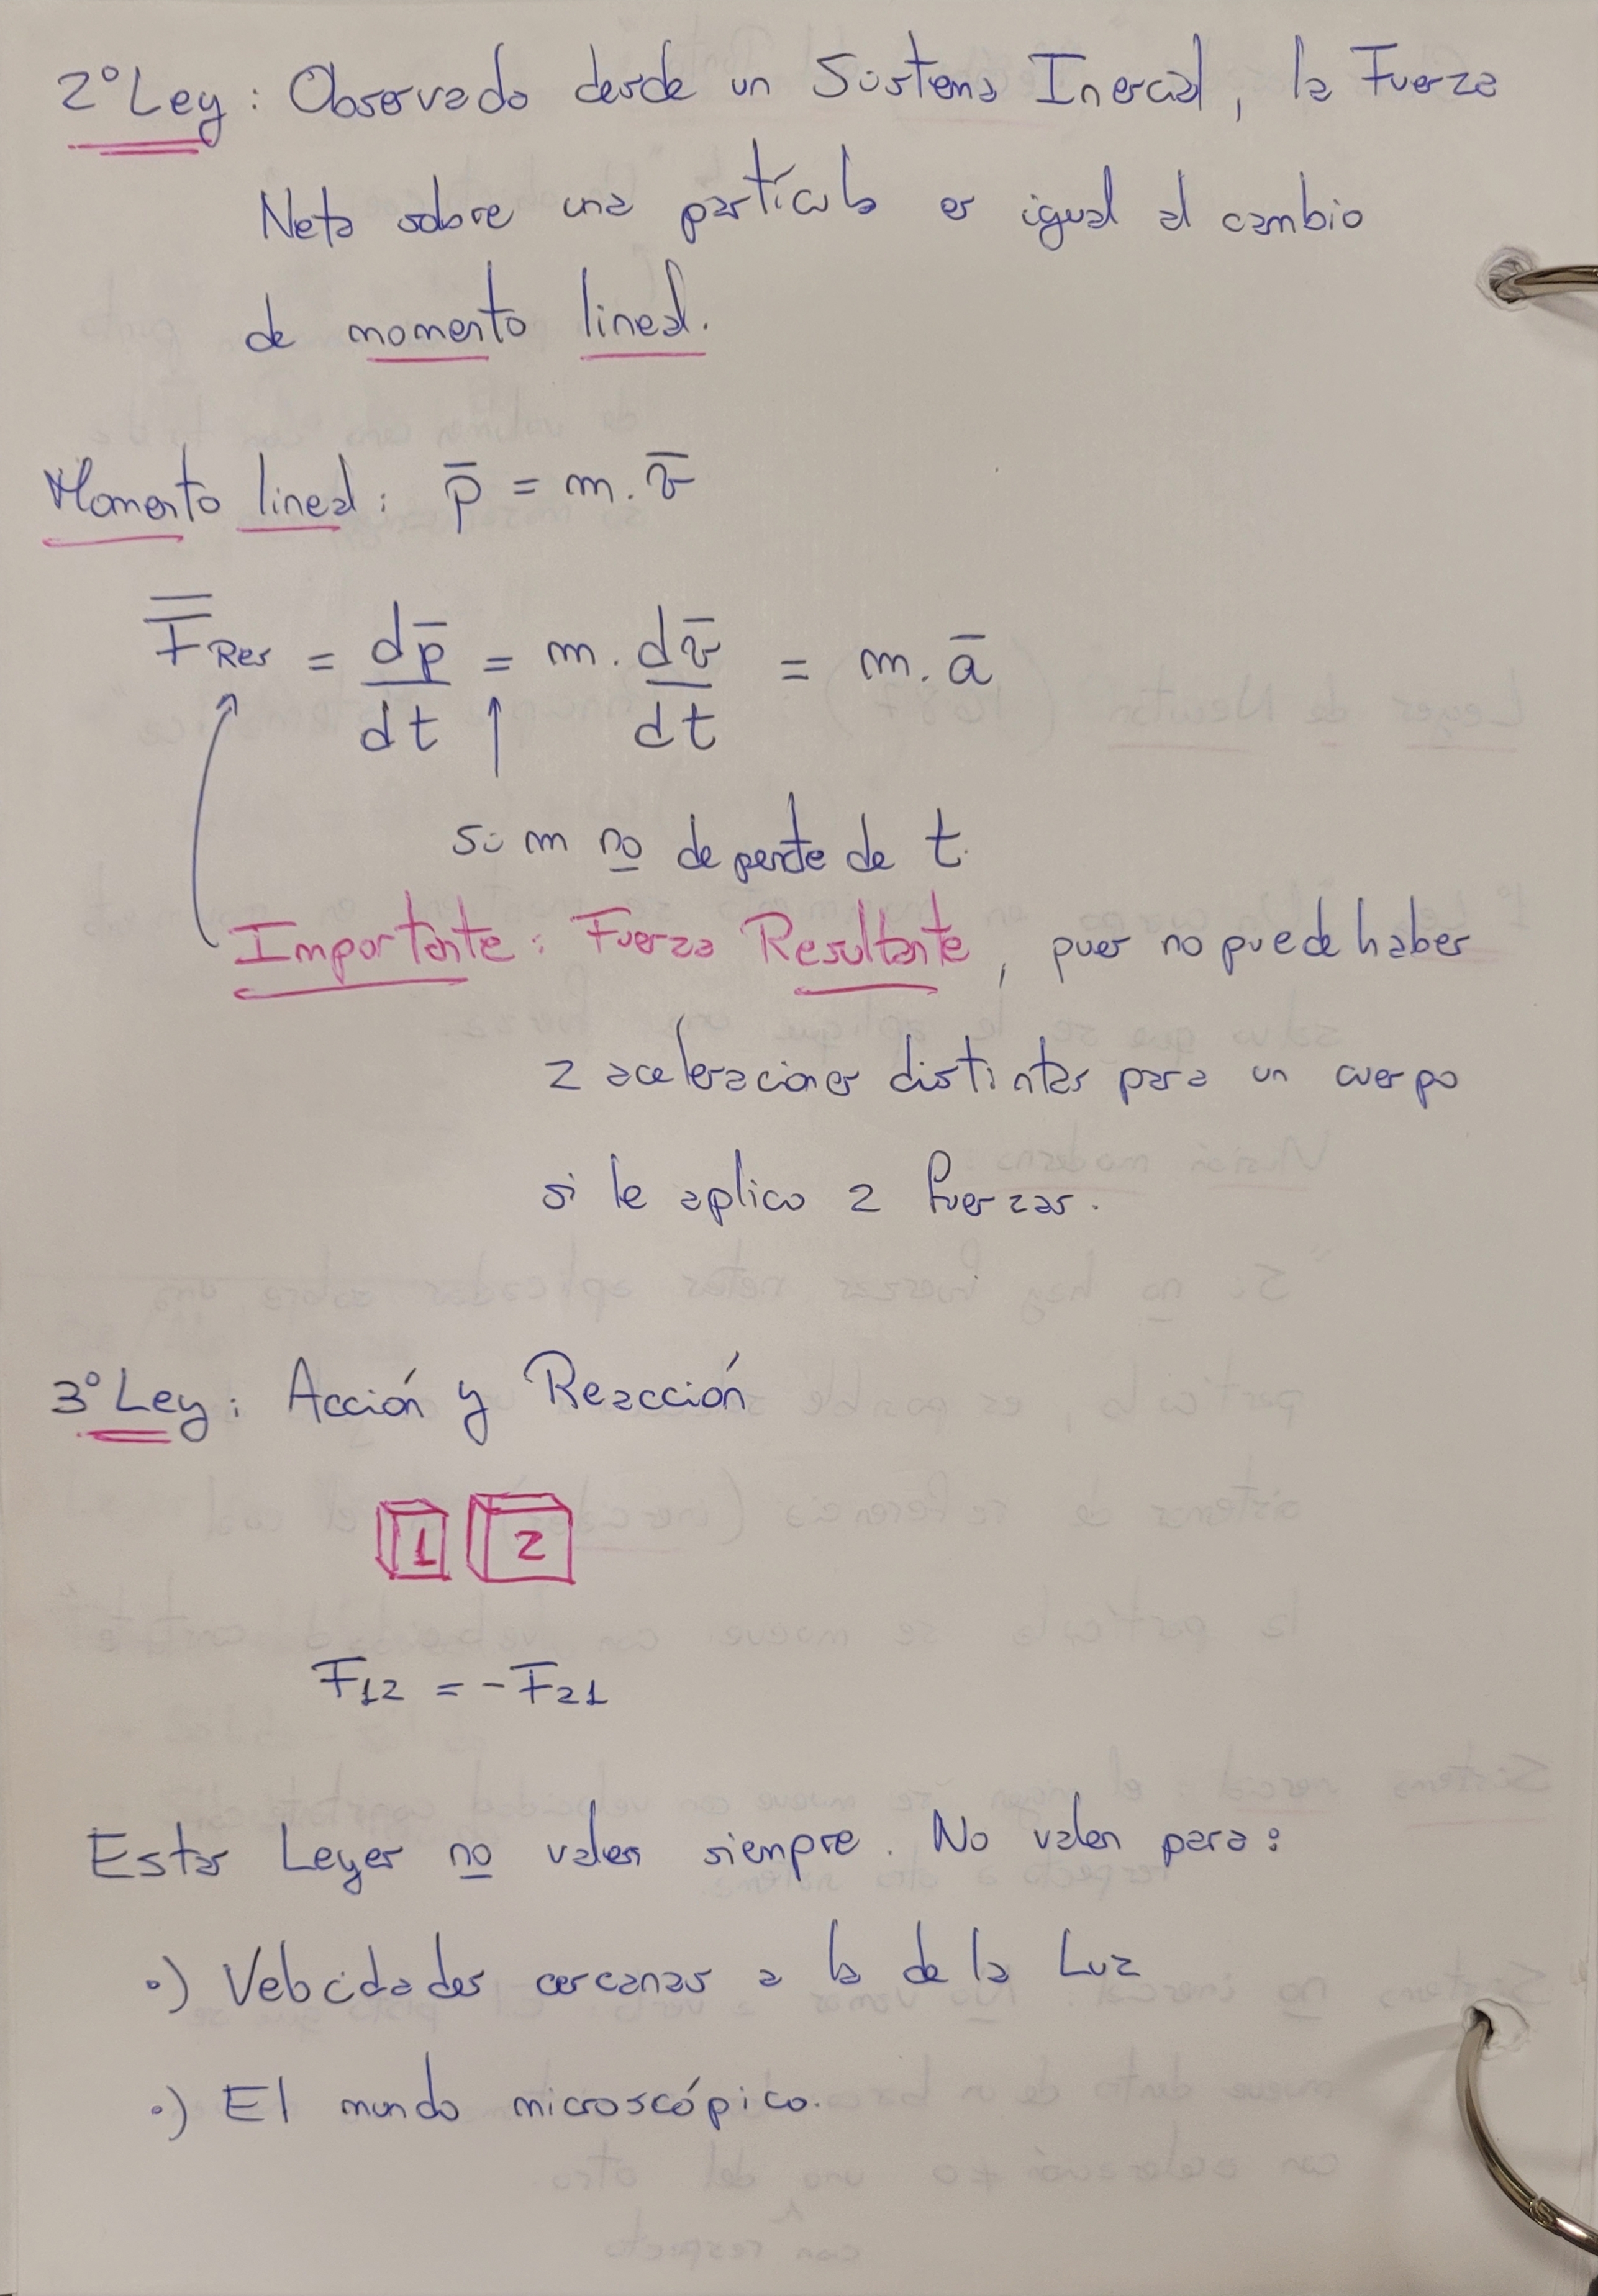 2° Ley: Observado desde un Sistema Inercial, la Fuerza
Neta sobre una partícula es igual al cambio
de momento lineal.
Momento lineal: p̅ = m. v̅
F̿ Res = dp̅/dt = m. dv̅/dt = m. a̅
si m no depende de t.
Importante: Fuerza Resultante, pues no puede haber
2 aceleraciones distintas para un cuerpo
si le aplico 2 fuerzas.
3° Ley: Acción y Reacción
1 2
F12 = -F21
Estas Leyes no valen siempre. No valen para:
•) Velocidades cercanas a la de la Luz
•) El mundo microscópico.